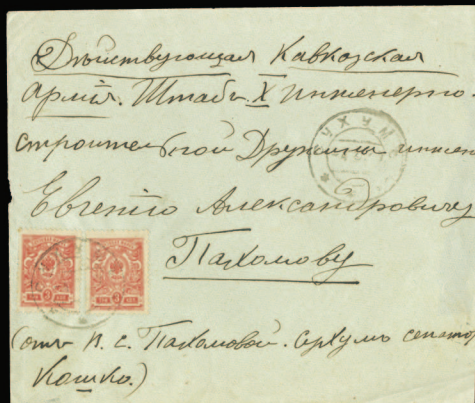 Дѣйствующая Кавказская
Армія. Штабъ X Инженерно-
строительной Дружины инжен
Евгенію Александровичу
Пахомову
(отъ Н. С. Пахомовой. Сухумъ
Кошко.)
УХУМ
3 3